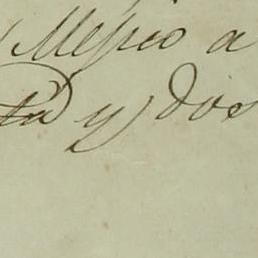 Mejico a
ta y dos